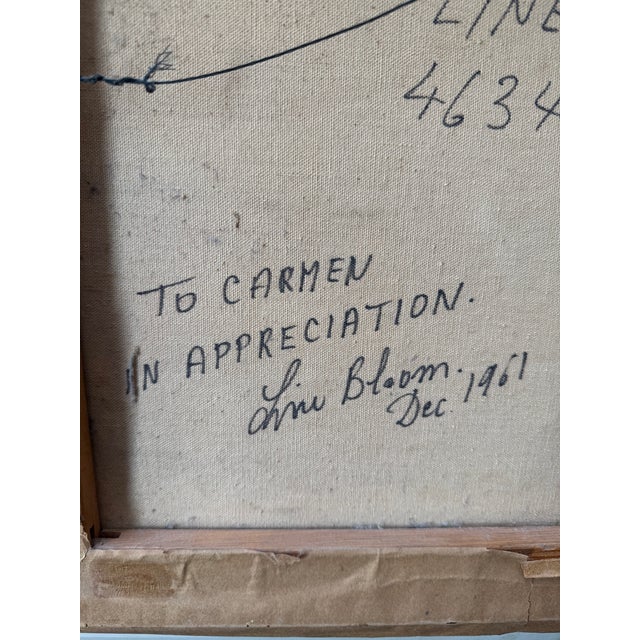 LINE
4634
TO CARMEN
IN APPRECIATION.
Line Bloom.
Dec. 1961